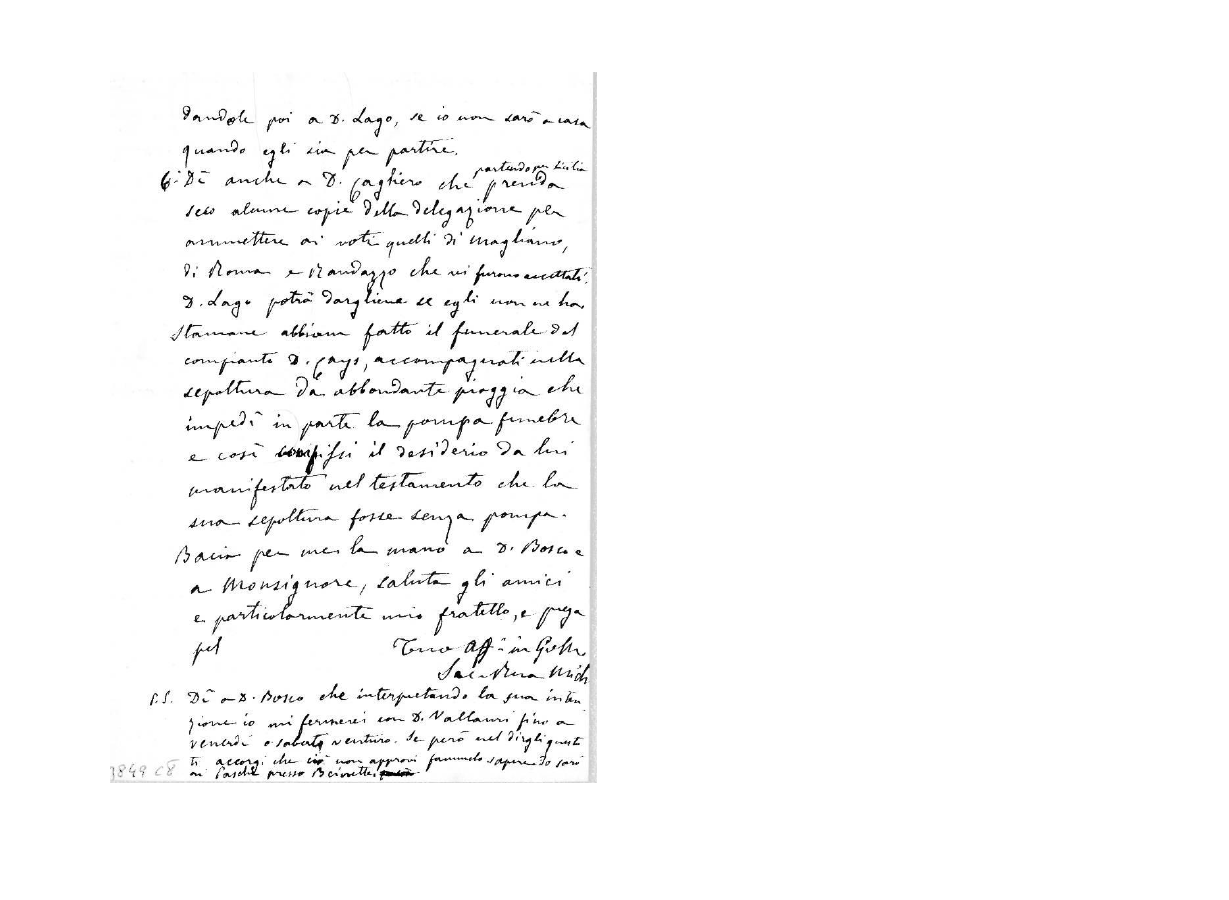 dandole poi a D. Lago, se io non sarò a casa
quando egli sia per partire.
partendo per Sicilia
6.° Dì anche a D. Cagliero che prenda
seco alcune copie della delegazione per
ammettere ai voti quelli di Magliano,
di Roma e Randazzo che vi furono accettati.
D. Lago potrà dargliene se egli non ne ha.
Stamane abbiam fatto il funerale del
compianto D. Cays, accompagnati nella
sepoltura da abbondante pioggia che
impedì in parte la pompa funebre
e così il desiderio da lui
manifestato nel testamento che la
sua sepoltura fosse senza pompa.
Bacia per me la mano a D. Bosco e
a Monsignore, saluta gli amici
e particolarmente mio fratello, e prega
pel
Tuo Aff.° in G.
Sac. Rua Mich
P.S. Dì a D. Bosco che interpretando la sua inten
zione io mi fermerei con D. Vallauri fino a
venerdì o sabato venturo. Se però nel dirgli questo
ti accorgi che ciò non approvi fammelo sapere. Io sarò
presso
3849 C8